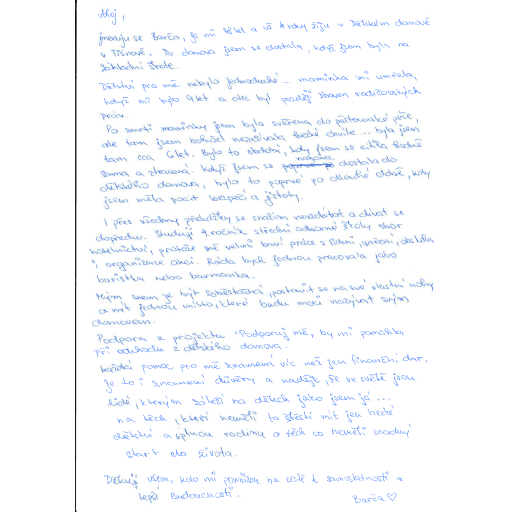 Ahoj,
jmenuji se Barča, je mi 18 let a už 4 roky žiju v Dětském domově
v Tišnově. Do domova jsem se dostala, když jsem byla na
základní škole.
Dětství pro mě nebylo jednoduché... maminka mi umřela,
když mi bylo 9 let a otec byl později zbaven rodičovských
práv.
Po smrti maminky jsem byla svěřena do pěstounské péče,
ale tam jsem bohužel nezažívala hezké chvíle... byla jsem
tam cca 6 let. Bylo to období, kdy jsem se cítila hodně
sama a ztracená. Když jsem se nakonec dostala do
dětského domova, bylo to poprvé po dlouhé době, kdy
jsem měla pocit bezpečí a jistoty.
I přes všechny překážky se snažím nevzdávat a dívat se
dopředu. Studuji 4. ročník střední odborné školy obor
hotelnictví, protože mě velmi baví práce s lidmi, vaření, obsluha
i organizace akcí. Ráda bych jednou pracovala jako
baristka nebo barmanka.
Mým snem je být soběstačná, postavit se na své vlastní nohy
a mít jednou místo, které budu moci nazývat svým
domovem.
Podpora z projektu "Podporuj mě, by mi pomohla
při odchodu z dětského domova.
Každá pomoc pro mě znamená víc než jen finanční dar,
je to i znamení důvěry a naděje, že ve světě jsou
lidé, kterým záleží na dětech jako jsem já...
na těch, kteří neměli to štěstí mít jen hezké
dětství a úplnou rodinu a těch co neměli snadný
start do života.
Děkuji všem, kdo mi pomůžou na cestě k samostatnosti a
lepší budoucnosti.
Barča ♡